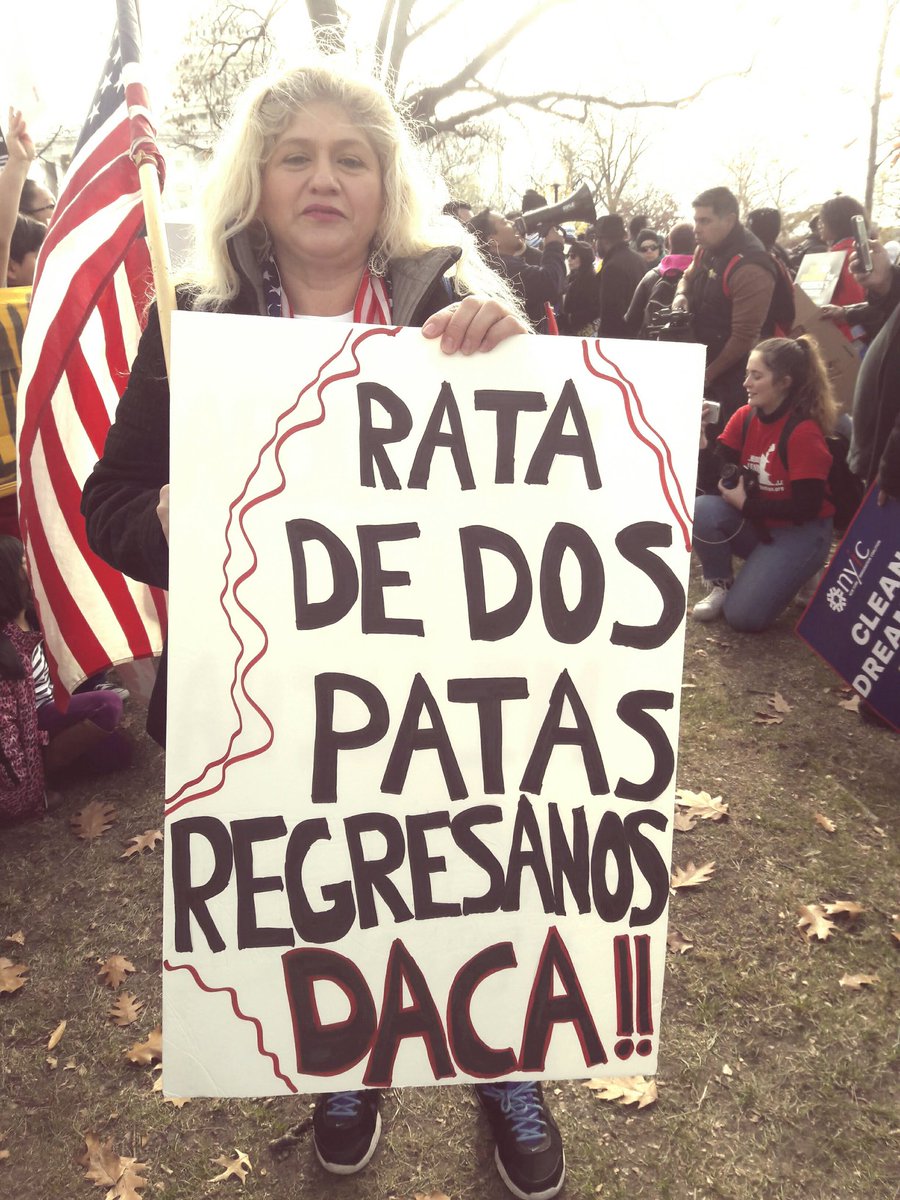 RATA
DE DOS
PATAS
REGRESANOS
DACA!!
nyic
CLEAN
DREAM